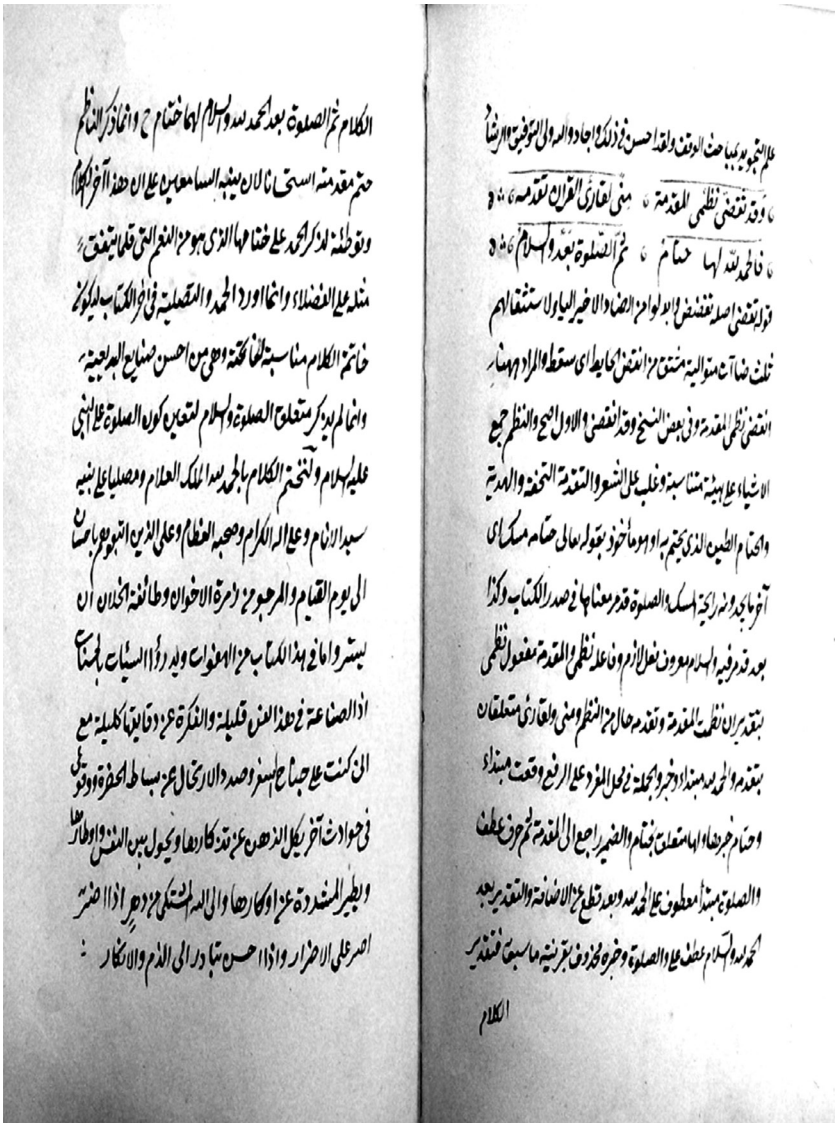 علم التجويد بمباحث الوقف ولقد احسن في ذلك واجاد والله ولي التوفيق والرشاد
وقد تقضى نظمي المقدمة منى لقارئ القران تقدمه
فالحمد لله لها ختام ثم الصلوة بعد والسلام
قوله تقضى اصله تقضض وابدلوا من الضاد الاخير الياء لاستثقالهم
ثلث ضاآت متوالية مشتق من انقض الحايط اى سقط والمراد ههنا
انقضى نظمى المقدمة وفى بعض النسخ وقد انقضى والاول اصح والنظم جمع
الاشياء على هيئة متناسبة وغلب على الشعر والتقدمة التحفة والهدية
والختام الطين الذى يختم به او هو مأخوذ بقوله تعالى ختامه مسك اى
آخر ما يجدونه رايحة المسك والصلوة قد مر معناها فى صدر الكتاب وكذا
بعد قد مر فيه والسلام معروف فعل لازم وفاعله نظمى والمقدمة مفعول نظمى
بتقدير ان نظمت المقدمة وتقدمه حال من النظم ومنى ولقارئ متعلقان
بتقدمه والحمد لله مبتداء وخبر والجملة فى محل المفرد على الرفع وقعت مبتداء
وختام خبرها ولها متعلق بختام والضمير راجع الى المقدمة ثم حرف عطف
والصلوة مبتدأ معطوف على الحمد لله وبعد قطع عن الاضافة والتقدير بعد
الحمد لله والسلام عطف على والصلوة وخبره محذوف بقرينة ما سبق فتقدير
الكلام
الكلام ثم الصلوة بعد الحمد لله والسلام لهما ختام ح وانما ذكر الناظم
ختم مقدمته استحسانا لان ينبه السامعين على ان هذا آخر الكلام
وتوطئة لذكر الحمد على ختامها الذى هو من النعم التى قلما يتفق
مثله على الفضلاء وانما اورد الحمد والتصلية فى اخر الكتاب ليكون
خاتمة الكلام مناسبة لفاتحته وهى من احسن صنايع البديعية
وانما لم يذكر متعلق الصلوة والسلام لتعين كون الصلوة على النبى
عليه السلام ولنختم الكلام بالحمد لله الملك العلام ومصليا على نبيه
سيد الانام وعلى اله الكرام وصحبه العظام وعلى الذين اتبعوهم باحسان
الى يوم القيام والمرجو من زمرة الاخوان وطائفة الخلان ان
يستروا ما فى هذا الكتاب من الهفوات ويدرؤا السيئات بالحسنات
اذ الصناعة فى هذا الفن قليلة والفكرة عن دقايقها كليلة مع
انى كنت على جناح السفر وصدد الارتحال عن بساط الحضرة ووقوعى
فى حوادث آخر يكل الذهن عن تذكارها ويحول بين النفس واوطارها
ويطير عن اوكارها والى الله المشتكى من دهر اذا اضر
اصر على الاضرار واذا احسن تبادر الى الذم والانكار